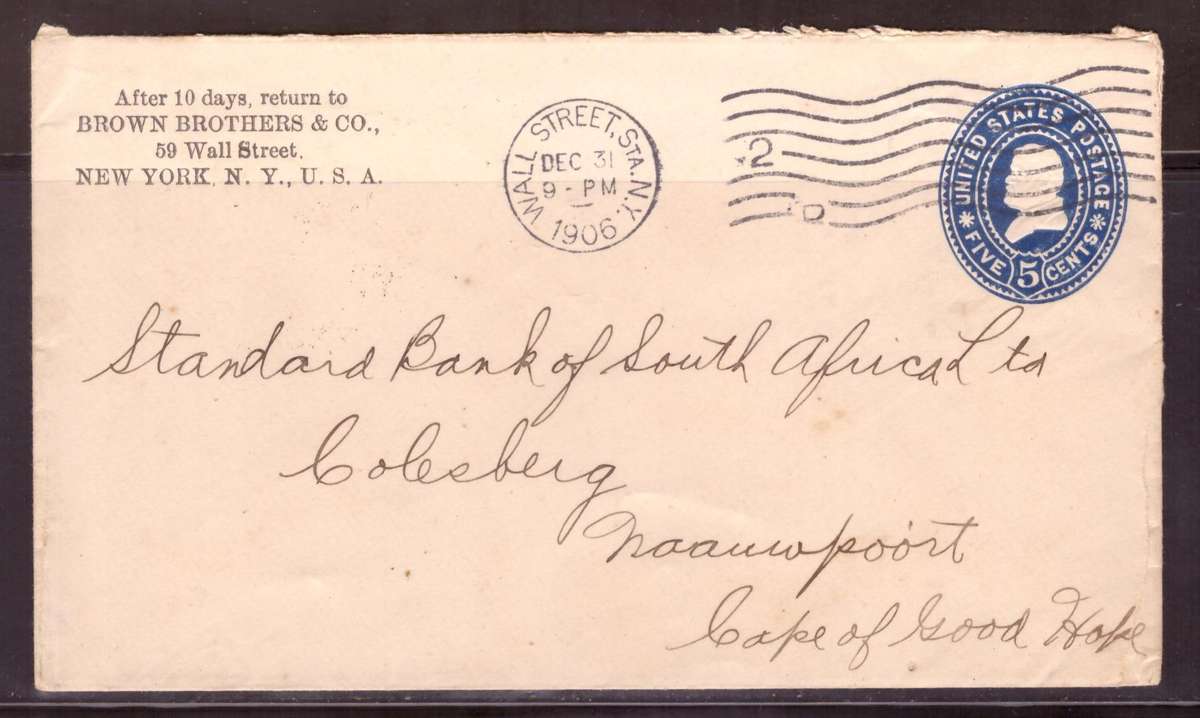 After 10 days, return to
BROWN BROTHERS & CO.,
59 Wall Street,
NEW YORK, N. Y., U. S. A.
WALL STREET, STA. N.Y.
DEC 31
9 - PM
1906
2
D
UNITED STATES POSTAGE
FIVE 5 CENTS
Standard Bank of South Africa Ltd
Colesberg
Naauwpoort
Cape of Good Hope